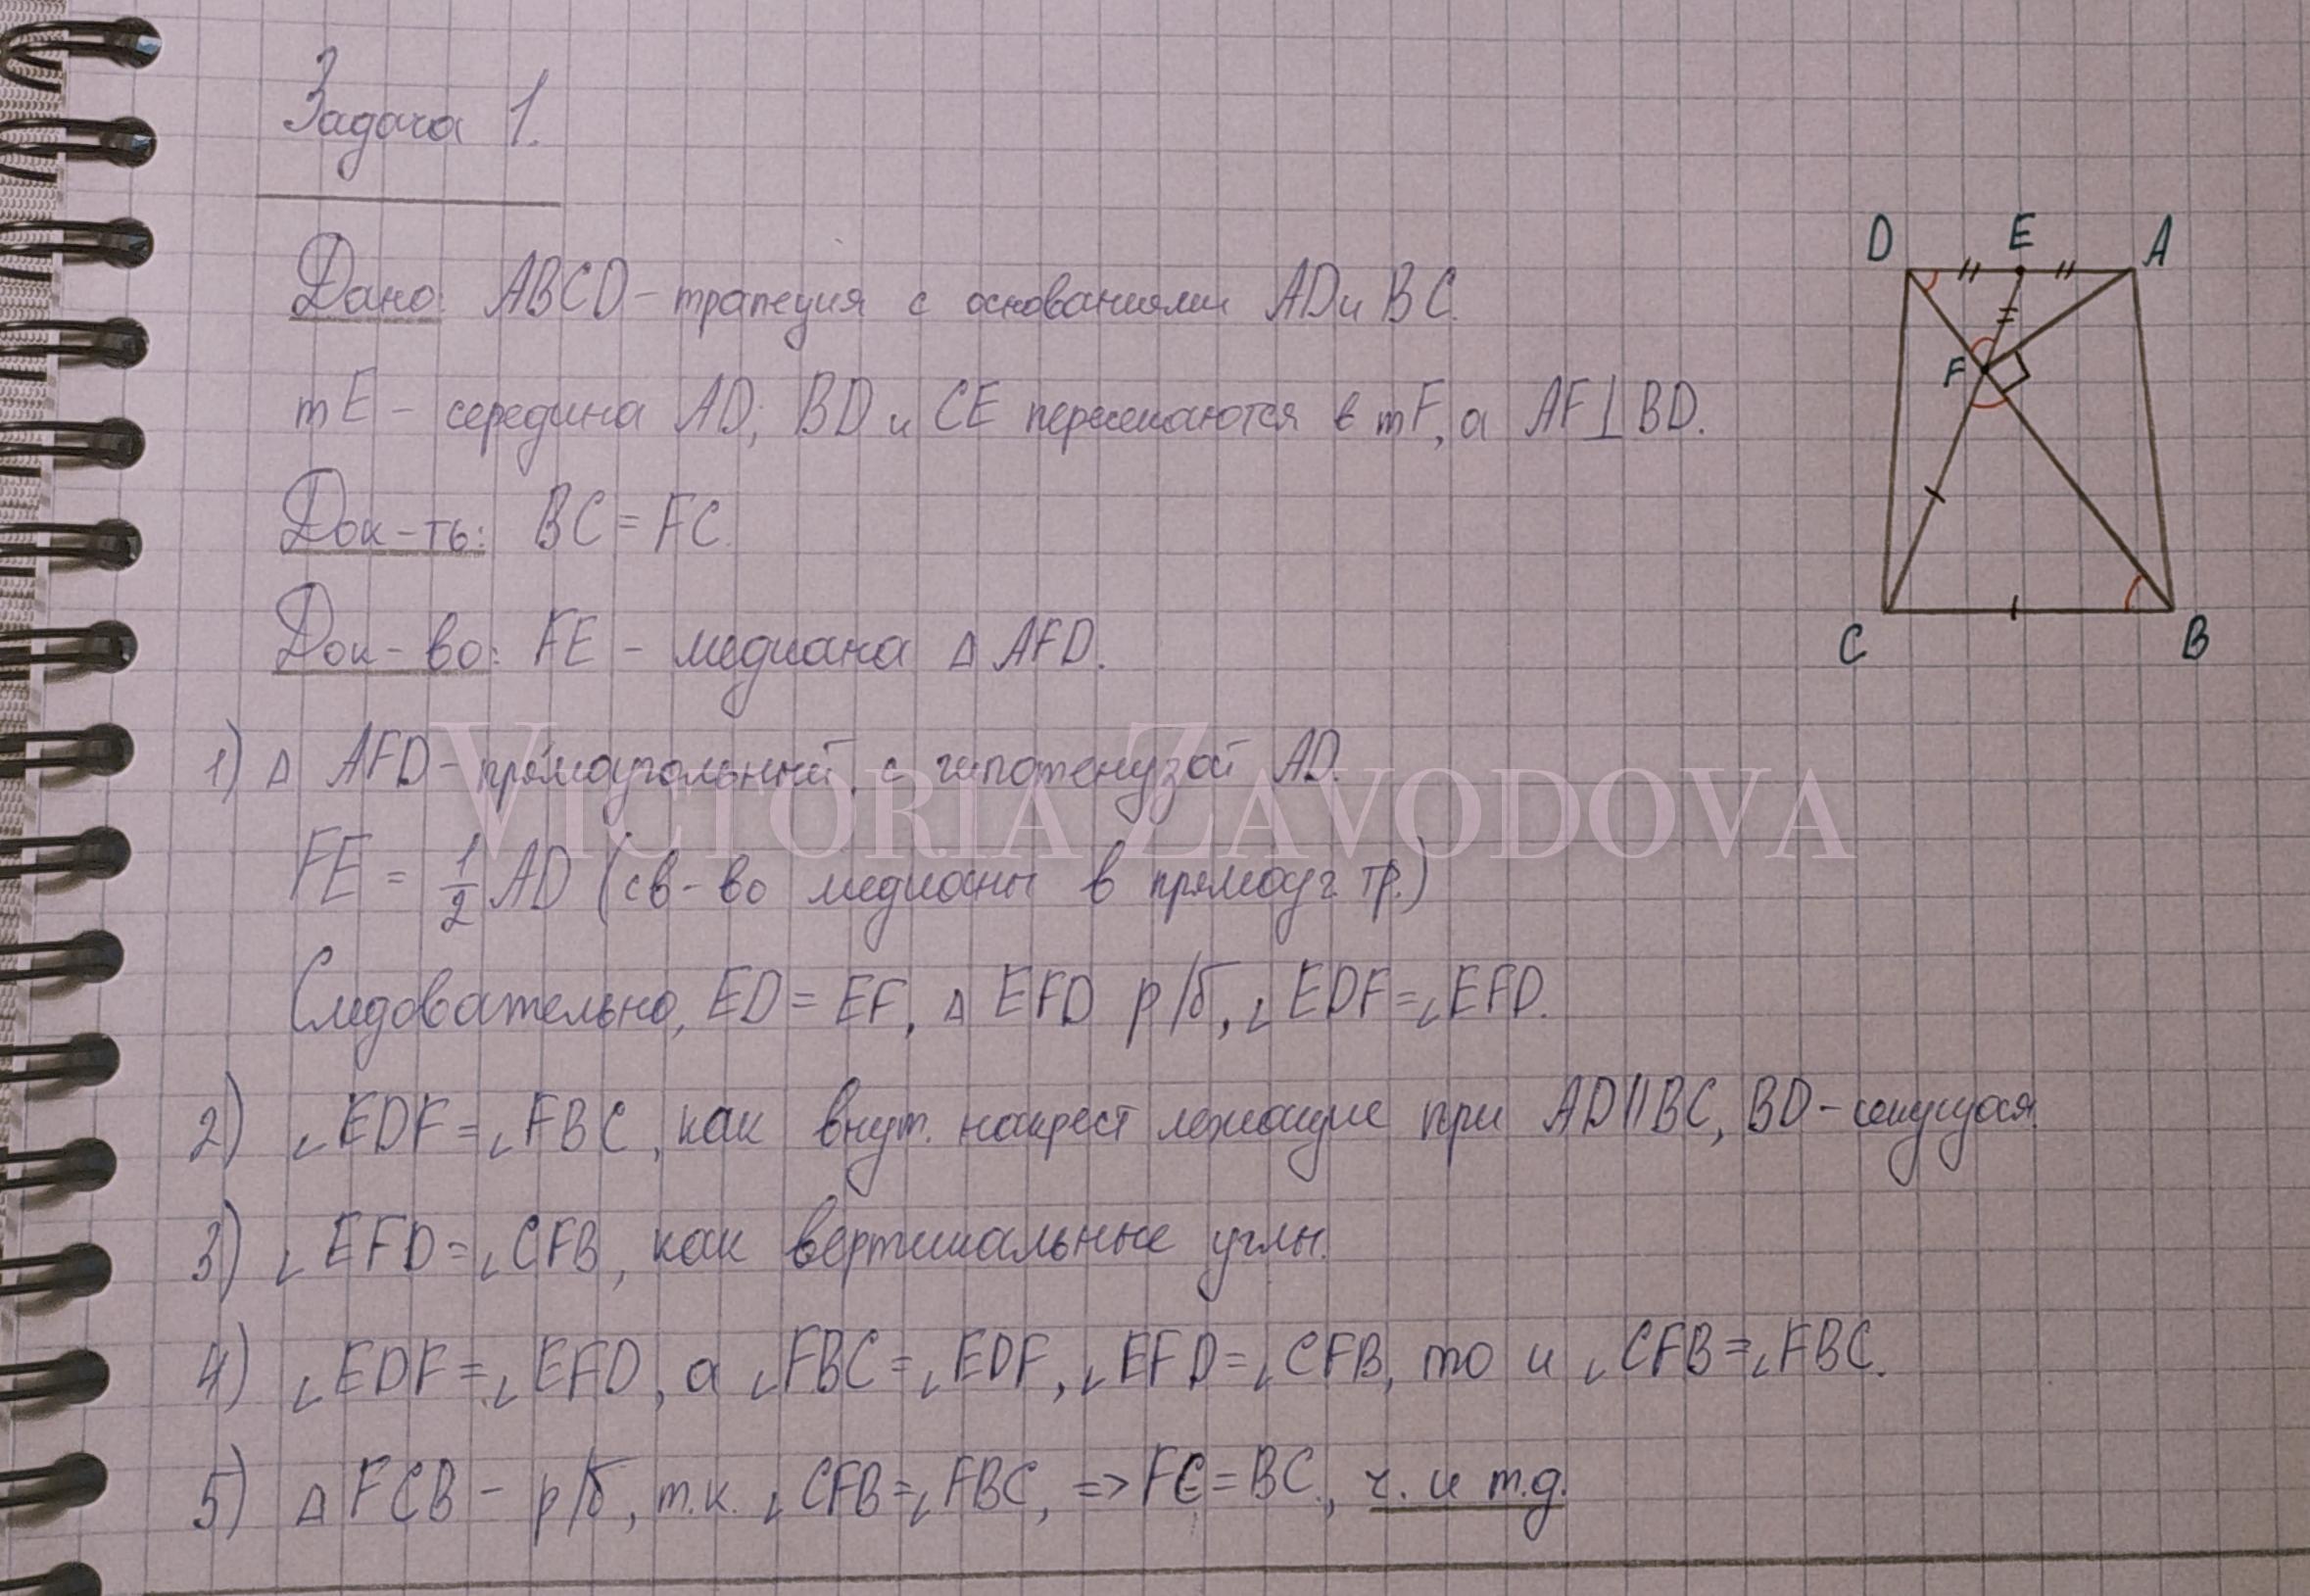 Задача 1.
Дано: ABCD – трапеция с основаниями AD и BC.
т E – середина AD; BD и CE пересекаются в т F, а AF⊥BD.
Док-ть: BC = FC.
Док-во: FE – медиана △ AFD.
1) △ AFD – прямоугольный, с гипотенузой AD.
FE = 1/2 AD (св-во медианы в прямоуг. тр.)
Следовательно, ED = EF, △ EFD р/б, ∠EDF = ∠EFD.
2) ∠EDF = ∠FBC, как внут. накрест лежащие при AD||BC, BD – секущая.
3) ∠EFD = ∠CFB, как вертикальные углы.
4) ∠EDF = ∠EFD, а ∠FBC = ∠EDF, ∠EFD = ∠CFB, то и ∠CFB = ∠FBC.
5) △ FCB – р/б, т.к. ∠CFB = ∠FBC, => FC = BC., ч. и т.д.
D E A
F
C B
VICTORIA ZAVODOVA